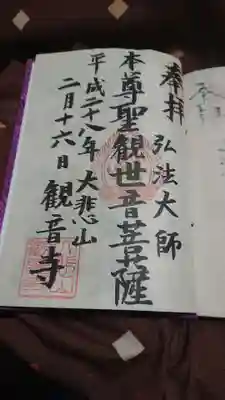 奉拝 弘法大師
本尊聖観世音菩薩
平成二十八年 大悲山
二月十六日 観音寺